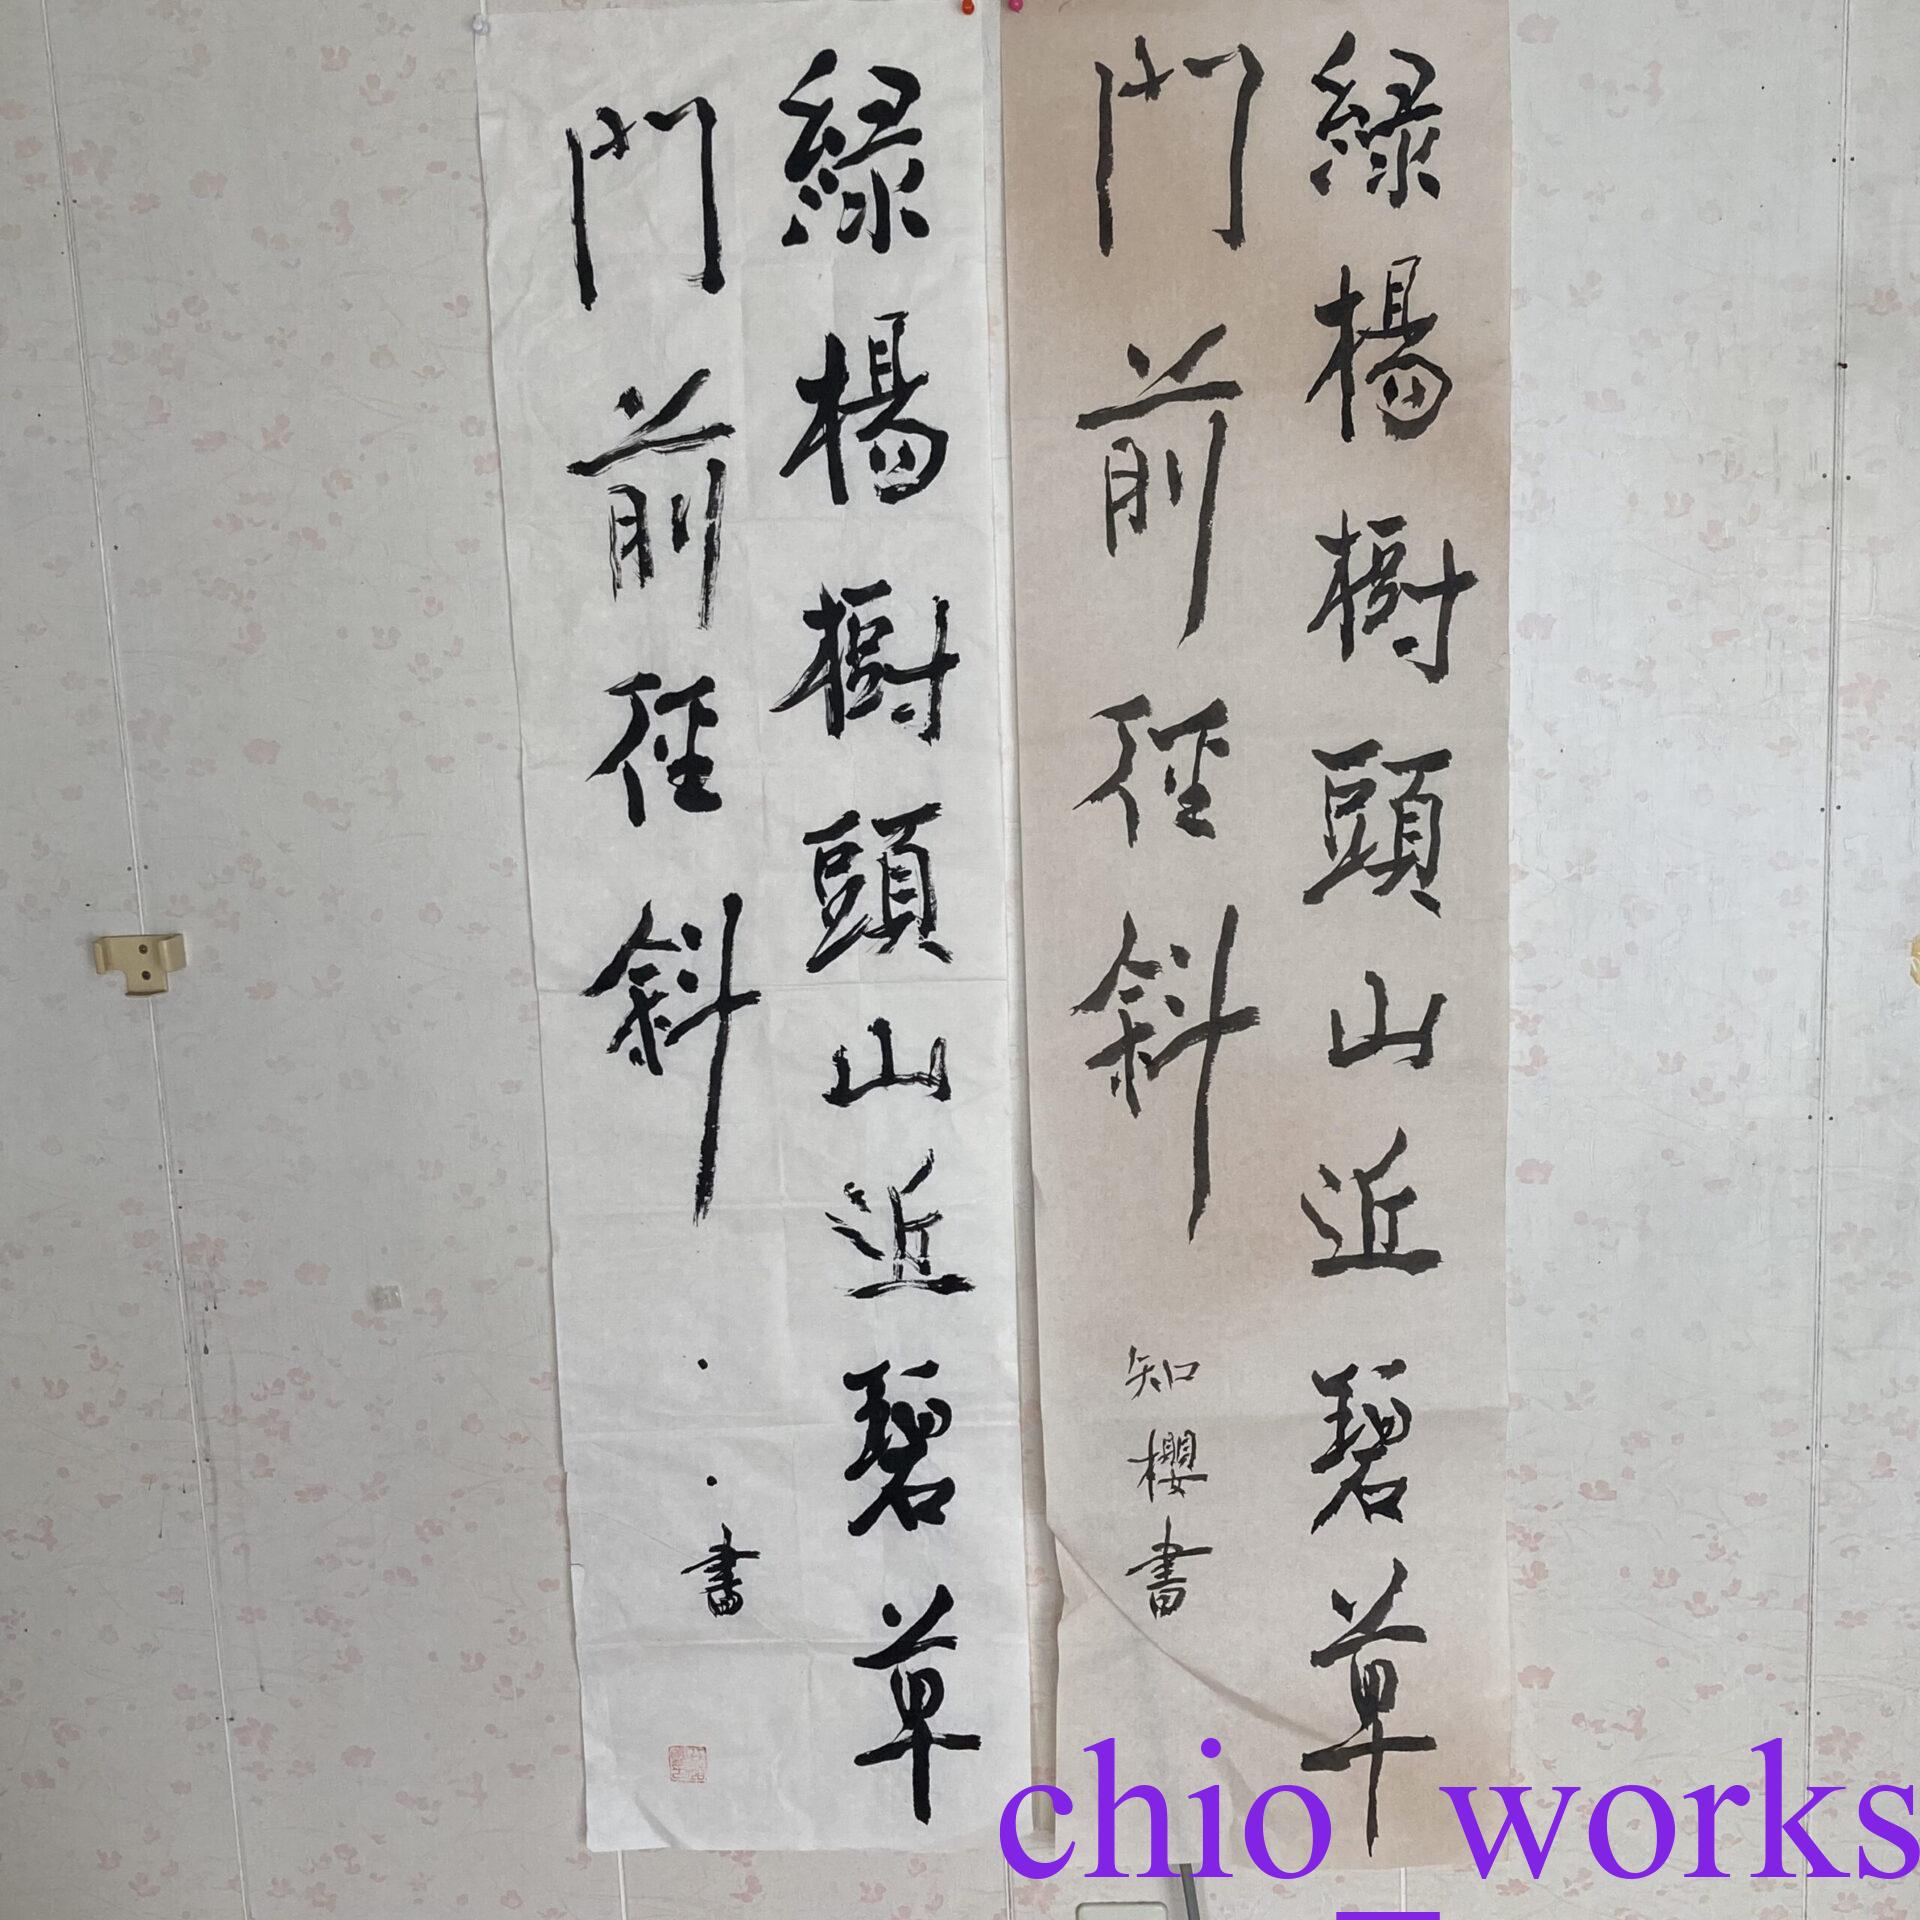 綠楊樹頭山近碧草
門前徑斜
知櫻書
綠楊樹頭山近碧草
門前徑斜
・・書
chio_works